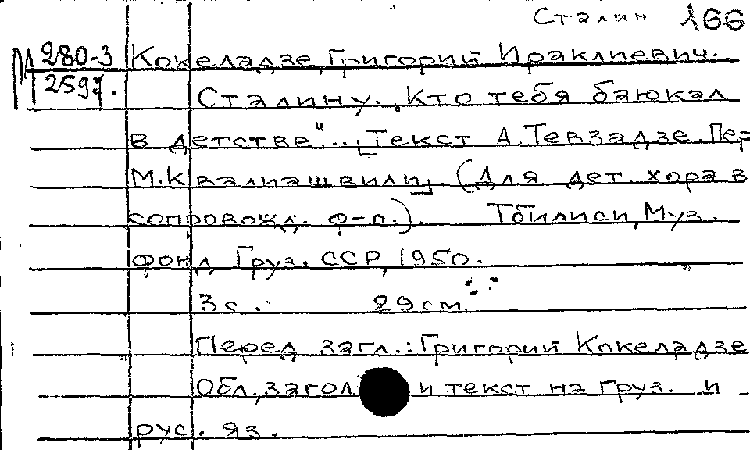 Сталин 166
М 280-3
2597.
Кокеладзе, Григорий Ираклиевич.
Сталину. „Кто тебя баюкал
в детстве"... [Текст А. Тевзадзе. Пер.
М. Квалиашвили]. (Для дет. хора в
сопровожд. ф-п.). Тбилиси, Муз.
фонд Груз. ССР, 1950.
3 с. 29 см.
Перед загл.: Григорий Кокеладзе
Обл., загол. и текст на груз. и
рус. яз.